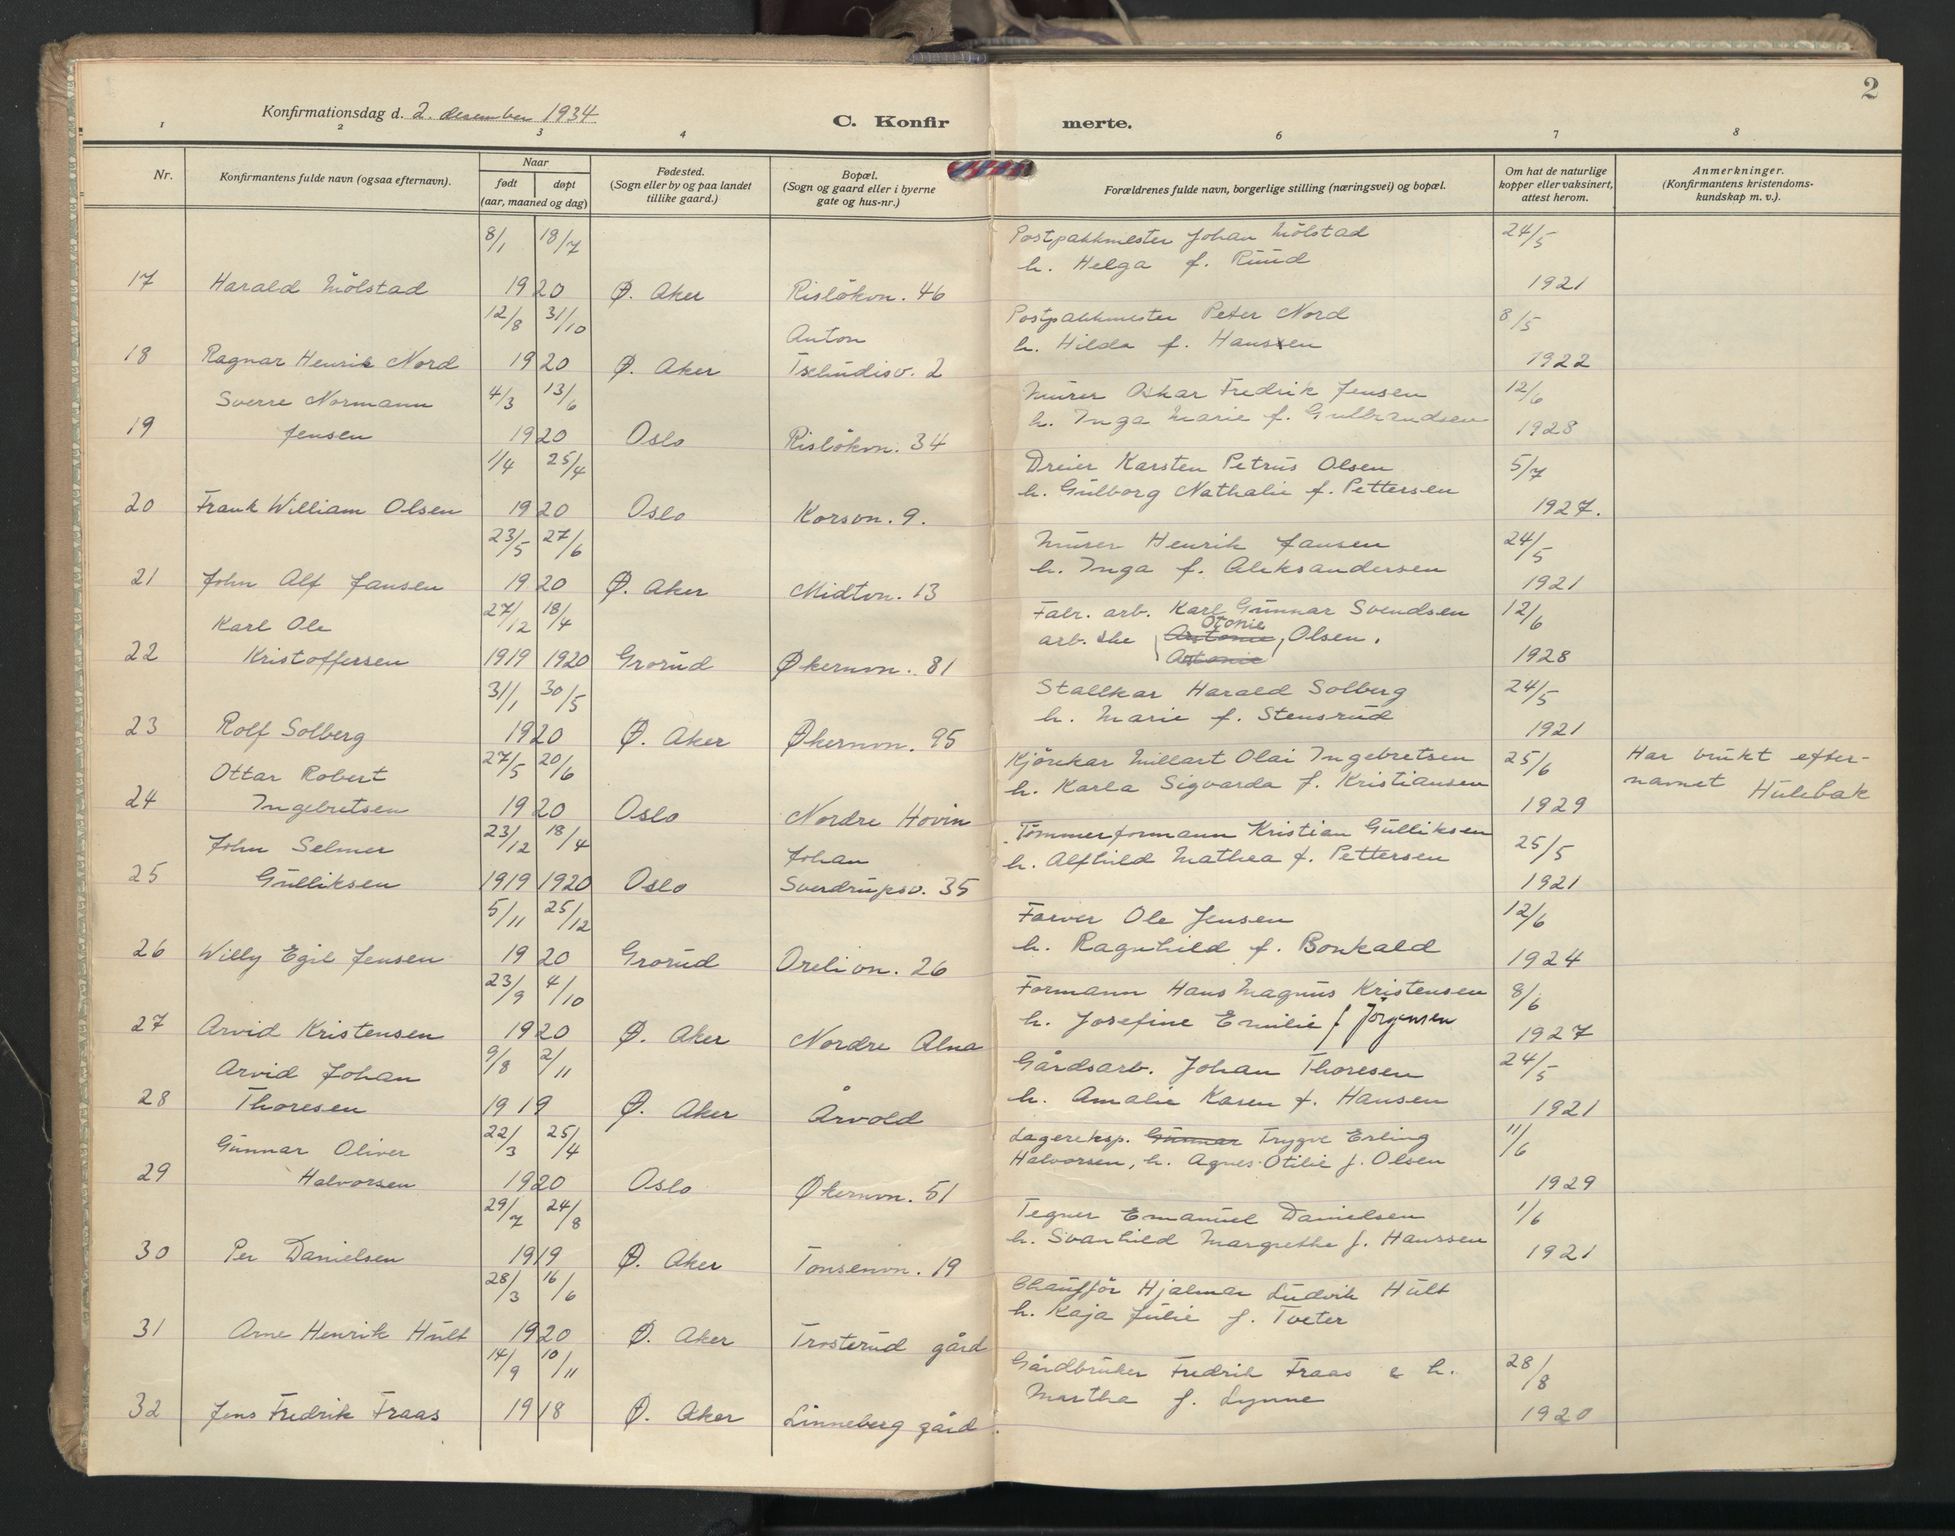 2
Konfirmationsdag d. 2. desember 1934
C. Konfirmerte.
1 2 3 4 5 6 7 8
Nr.
Konfirmantens fulde navn (ogsaa efternavn).
Naar
født døpt
(aar, maaned og dag)
Fødested.
(Sogn eller by og paa landet
tillike gaard.)
Bopæl.
(Sogn og gaard eller i byerne
gate og hus-nr.)
Forældrenes fulde navn, borgerlige stilling (næringsvei) og bopæl.
Om hat de naturlige
kopper eller vaksinert,
attest herom.
Anmerkninger.
(Konfirmantens kristendoms-
kundskap m. v.).
8/1 18/7 Postpakkmester Johan Mölstad 24/5
h. Helga f. Ruud
17 Harald Mölstad 1920 Ø. Aker Rislökvn. 46 1921
12/8 31/10 Postpakkmester Peter Nord 8/5
Anton h. Hilda f. Hanssen
18 Ragnar Henrik Nord 1920 Ø. Aker Tschudisv. 2 1922
Sverre Normann 4/3 13/6 Murer Oskar Fredrik Jensen 12/6
h. Inga Marie f. Gulbrandsen
19 Jensen 1920 Oslo Rislökvn. 34 1928
1/4 25/4 Dreier Karsten Petrus Olsen 5/7
h. Gulborg Nathalie f. Pettersen
20 Frank William Olsen 1920 Oslo Korsvn. 9. 1927.
23/5 27/6 Murer Henrik Jansen 24/5
h. Inga f. Aleksandersen
21 John Alf Jansen 1920 Ø. Aker Midtvn. 13 1921
Karl Ole 27/12 18/4 Fabr. arb. Karl Gunnar Svendsen 12/6
Otonie
arb.ske Antonie, Olsen.
Antonie
22 Kristoffersen 1919 1920 Grorud Økernvn. 81 1928
31/1 30/5 Stallkar Harald Solberg 24/5
h. Marie f. Stensrud
23 Rolf Solberg 1920 Ø. Aker Økernvn. 95 1921
Ottar Robert 27/5 20/6 Kjörekar Millart Olai Ingebretsen 25/6 Har brukt efter-
h. Karla Sigvarda f. Kristiansen navnet Hulebak
24 Ingebretsen 1920 Oslo Nordre Hovin 1929
John Selmer 23/12 18/4 Tömmerformann Kristian Gulliksen 25/5
Johan h. Alfhild Mathea f. Pettersen
25 Gulliksen 1919 1920 Oslo Sverdrupsv. 35 1921
5/11 25/12 Farver Ole Jensen 12/6
h. Ragnhild f. Bonkald
26 Willy Egil Jensen 1920 Grorud Orelivn. 26 1924
23/9 4/10 Formann Hans Magnus Kristensen 8/6
h. Josefine Emilie f Jörgensen
27 Arvid Kristensen 1920 Ø. Aker Nordre Alna 1927
Arvid Johan 9/8 2/11 Gårdsarb. Johan Thoresen 24/5
h. Amalie Karen f. Hansen
28 Thoresen 1919 Ø. Aker Årvold 1921
Gunnar Oliver 22/3 25/4 Lagereksp. Gunnar Trygve Erling 11/6
Halvorsen, h. Agnes Otilie f. Olsen
29 Halvorsen 1920 Oslo Økernvn. 51 1929
29/7 24/8 Tegner Emanuel Danielsen 1/6
h. Svanhild Margrethe f. Hanssen
30 Per Danielsen 1919 Ø. Aker Tonsenvn. 19 1921
28/3 16/6 Chaufför Hjalmar Ludvik Hult
h. Kaja Julie f. Tveter
31 Arne Henrik Hult 1920 Ø. Aker Trosterud gård
14/9 10/11 Gårdbruker Fredrik Fraas & h. 28/8
Martha f. Lynne
32 Jens Fredrik Fraas 1918 Ø. Aker Linneberg gård. 1920